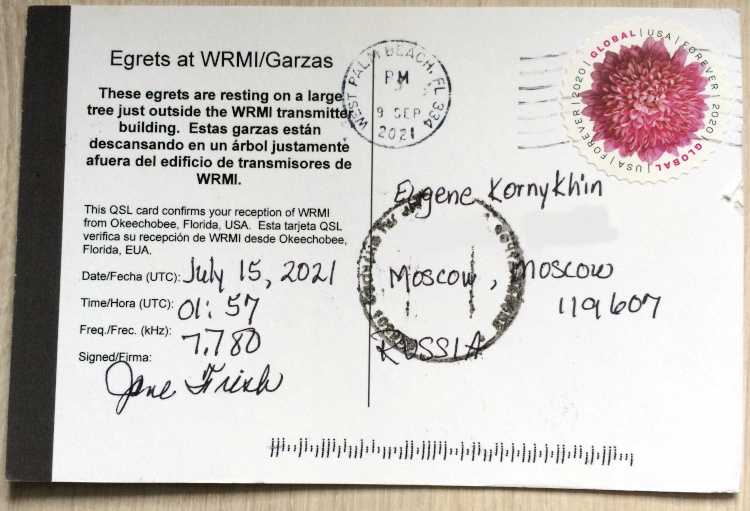 Egrets at WRMI/Garzas
These egrets are resting on a large
tree just outside the WRMI transmitter
building. Estas garzas están
descansando en un árbol justamente
afuera del edificio de transmisores de
WRMI.
This QSL card confirms your reception of WRMI
from Okeechobee, Florida, USA. Esta tarjeta QSL
verifica su recepción de WRMI desde Okeechobee,
Florida, EUA.
Date/Fecha (UTC): July 15, 2021
Time/Hora (UTC): 01:57
Freq./Frec. (kHz): 7,780
Signed/Firma:
Jane
WEST PALM BEACH, FL 334
PM
9 SEP
2021
GLOBAL | USA | FOREVER | 2020
GLOBAL | USA | FOREVER | 2020
Eugene Kornykhin
Moscow, Moscow
119607
RUSSIA